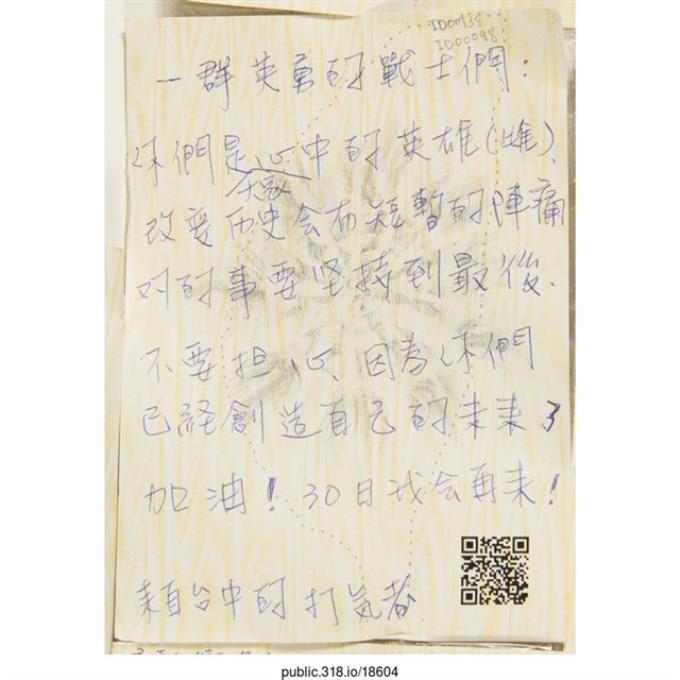 ID00138
ID00098
一群英勇的戰士們:
你們是大家心中的英雄(雌).
改变历史会有短暫的陣痛
对的事要坚持到最後.
不要担心、因為你們
已経創造自己的未來了
加油!30日我会再来!
來自台中的打気者
public.318.io/18604